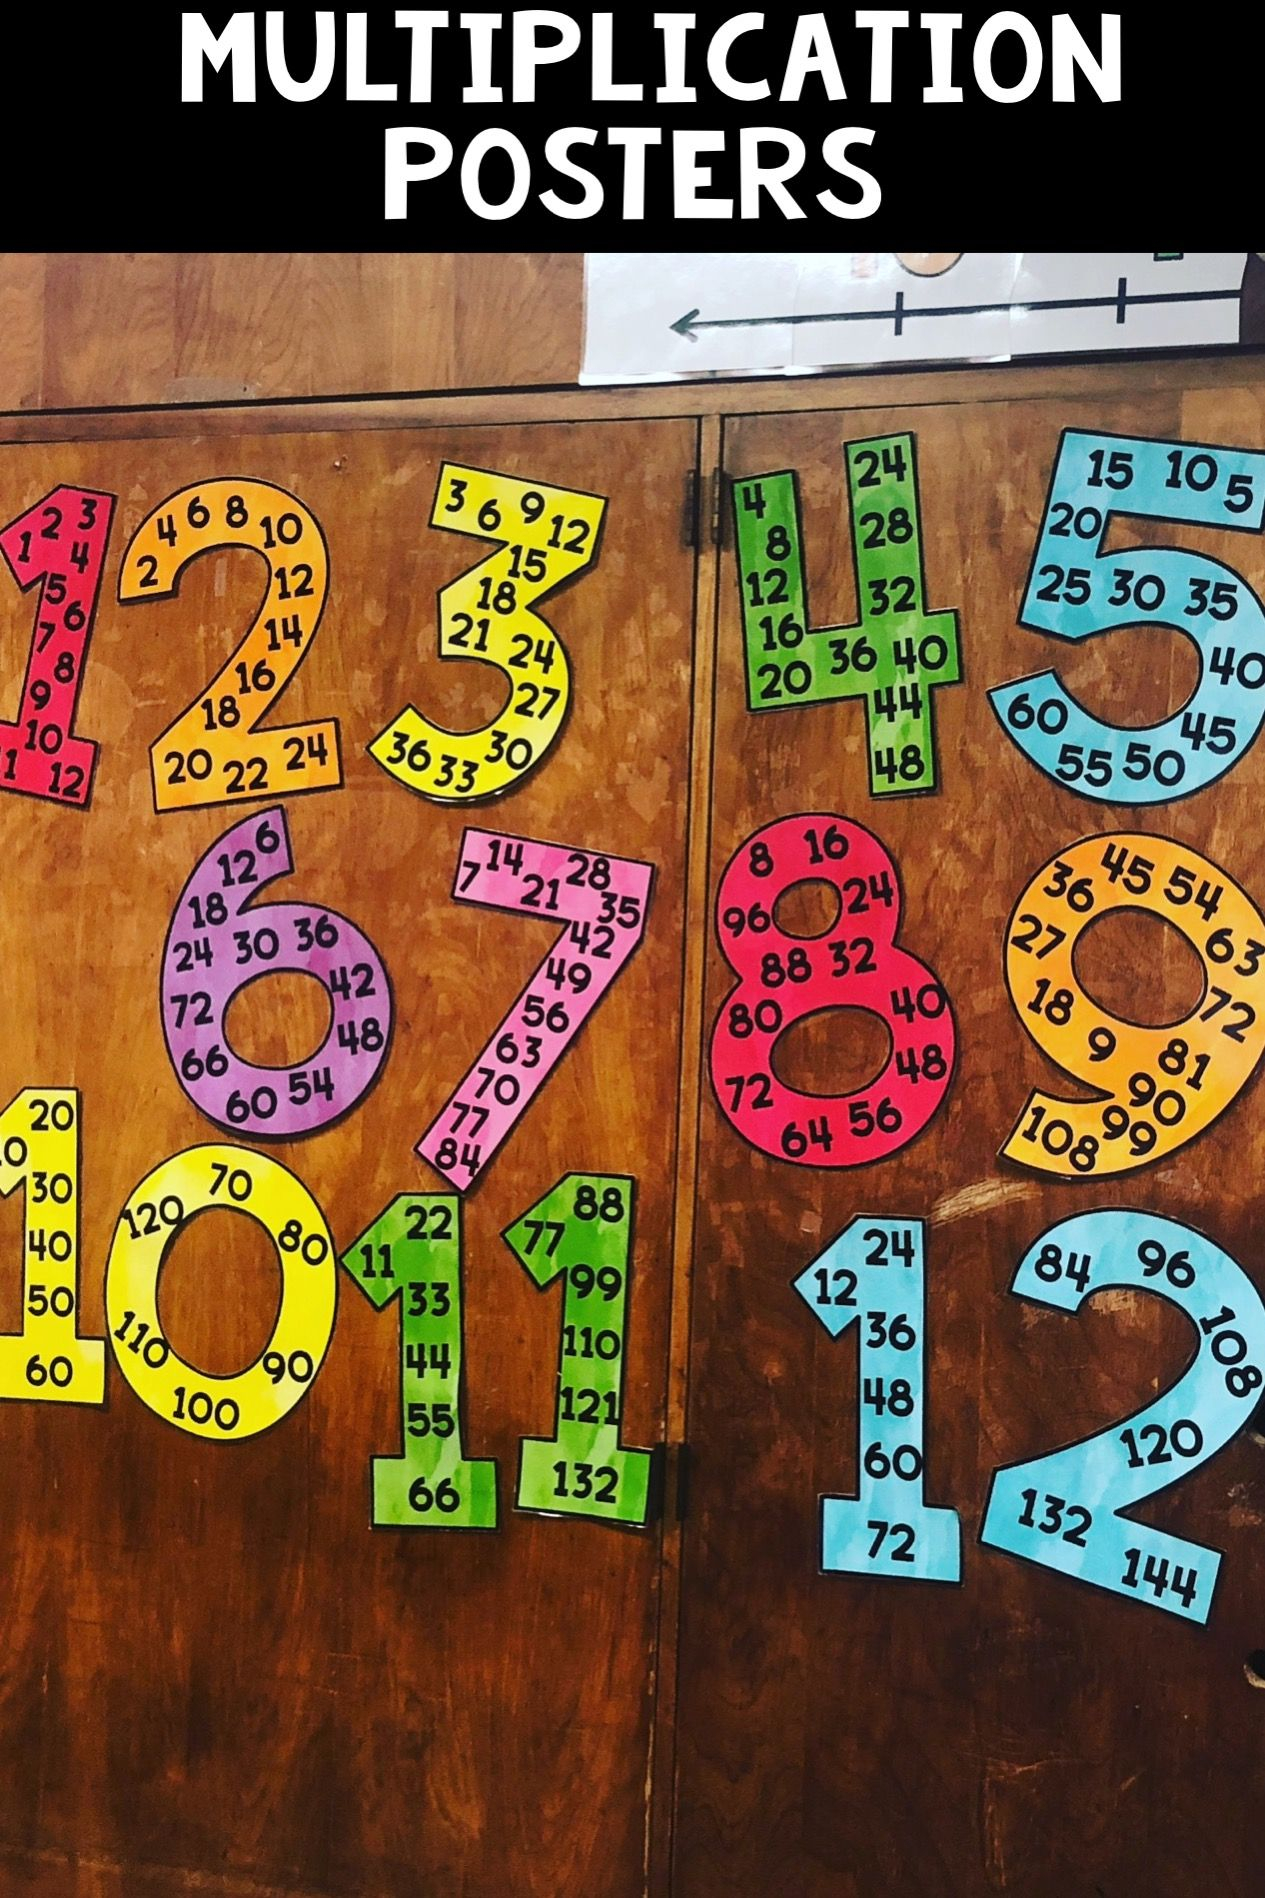 MULTIPLICATION
POSTERS
1 2 3
4
5
6
7
8
9
10
12
2 4 6 8 10
12
14
16
18
20 22 24
3 6 9 12
15
18
21 24
27
30
33
36
4
8
12
16
20
24
28
32
36 40
44
48
15 10 5
20
25 30 35
40
45
50
55
60
6
12
18
24 30 36
42
48
54
60
66
72
7 14 21 28
35
42
49
56
63
70
77
84
8 16
24
32
40
48
56
64
72
80
88
96
45 54
36 63
27 72
18 9 81
90
99
108
20
30
40
50
60
70
80
90
100
110
120
11 22
33
44
55
66
77 88
99
110
121
132
12 24
36
48
60
72
84 96
108
120
132
144